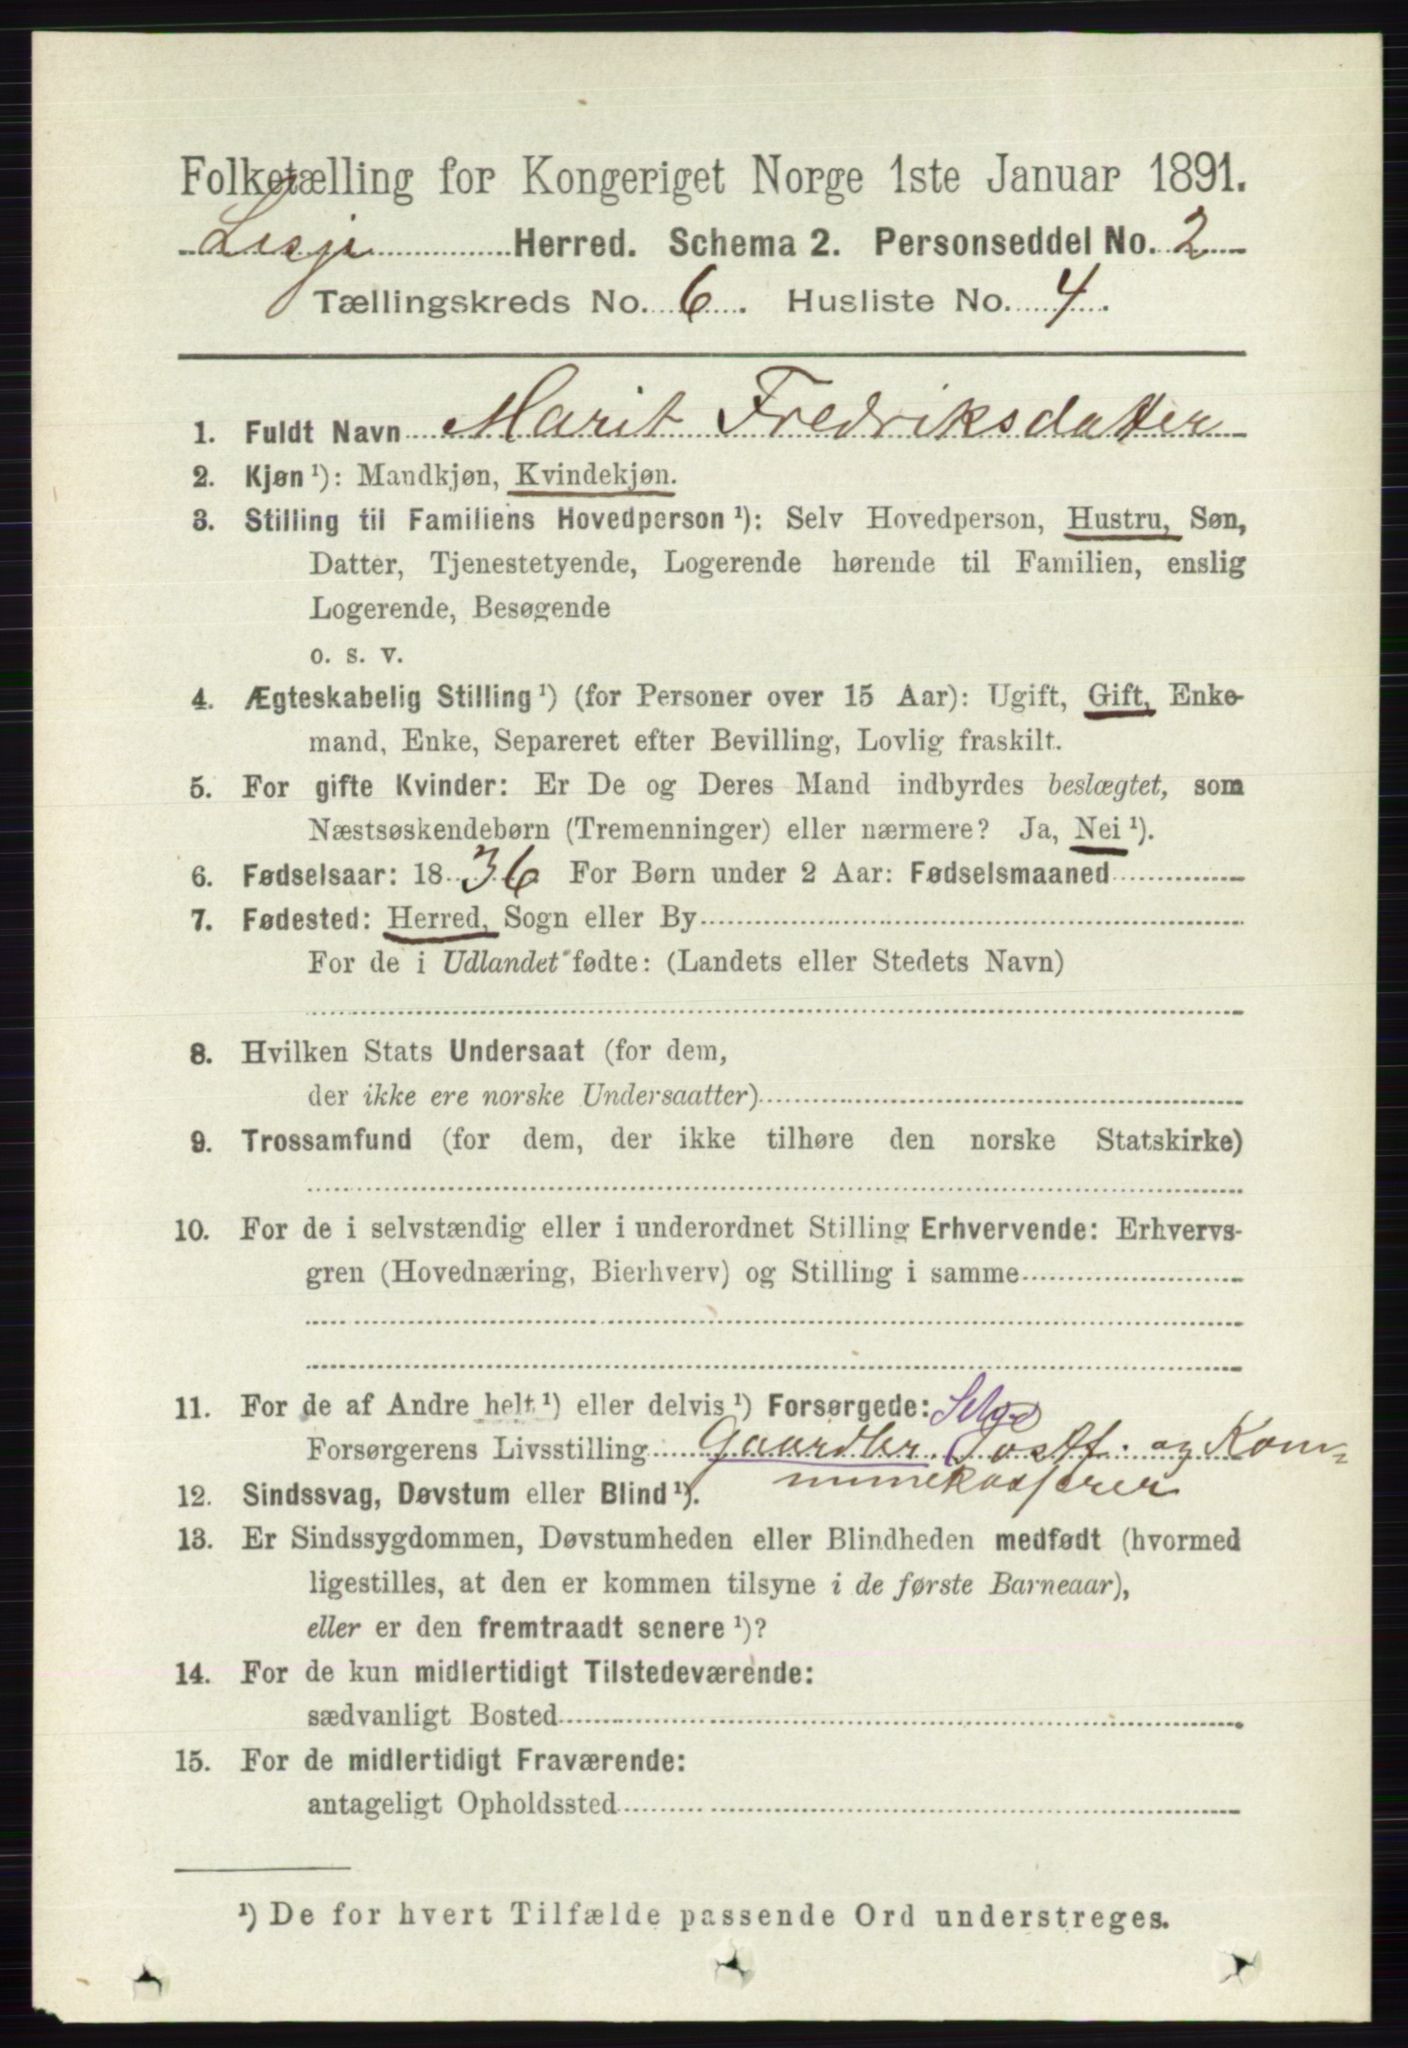 Folketælling for Kongeriget Norge 1ste Januar 1891.
Lesje Herred. Schema 2. Personseddel No. 2
Tællingskreds No. 6. Husliste No. 4.
1. Fuldt Navn Marit Fredriksdatter
2. Kjøn ¹): Mandkjøn, Kvindekjøn.
3. Stilling til Familiens Hovedperson ¹): Selv Hovedperson, Hustru, Søn,
Datter, Tjenestetyende, Logerende hørende til Familien, enslig
Logerende, Besøgende
o. s. v.
4. Ægteskabelig Stilling ¹) (for Personer over 15 Aar): Ugift, Gift, Enke-
mand, Enke, Separeret efter Bevilling, Lovlig fraskilt.
5. For gifte Kvinder: Er De og Deres Mand indbyrdes beslægtet, som
Næstsøskendebørn (Tremenninger) eller nærmere? Ja, Nei ¹).
6. Fødselsaar: 1836 For Børn under 2 Aar: Fødselsmaaned
7. Fødested: Herred, Sogn eller By
For de i Udlandet fødte: (Landets eller Stedets Navn)
8. Hvilken Stats Undersaat (for dem,
der ikke ere norske Undersaatter)
9. Trossamfund (for dem, der ikke tilhøre den norske Statskirke)
10. For de i selvstændig eller i underordnet Stilling Erhvervende: Erhvervs-
gren (Hovednæring, Bierhverv) og Stilling i samme
11. For de af Andre helt ¹) eller delvis ¹) Forsørgede:
Forsørgerens Livsstilling Gaardbr. Postf. og Kom-
munekasserer
12. Sindssvag, Døvstum eller Blind ¹).
13. Er Sindssygdommen, Døvstumheden eller Blindheden medfødt (hvormed
ligestilles, at den er kommen tilsyne i de første Barneaar),
eller er den fremtraadt senere ¹)?
14. For de kun midlertidigt Tilstedeværende:
sædvanligt Bosted
15. For de midlertidigt Fraværende:
antageligt Opholdssted
¹) De for hvert Tilfælde passende Ord understreges.